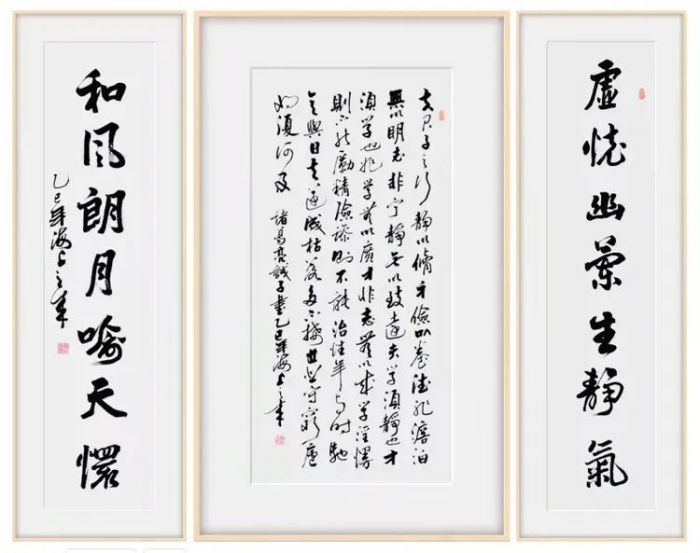 虛幽蘭生靜氣
夫君子之行靜以脩身儉以養德非澹泊
無以明志非宁靜無以致遠夫學須靜也才
須學也非學無以廣才非志無以成學淫慢
則不能勵精險躁則不能治性年与時馳
意與日去遂成枯落多不接世悲守窮廬
將復何及 諸葛亮誡子書乙巳年海上之
和風朗月喻天懷
乙巳年海上之